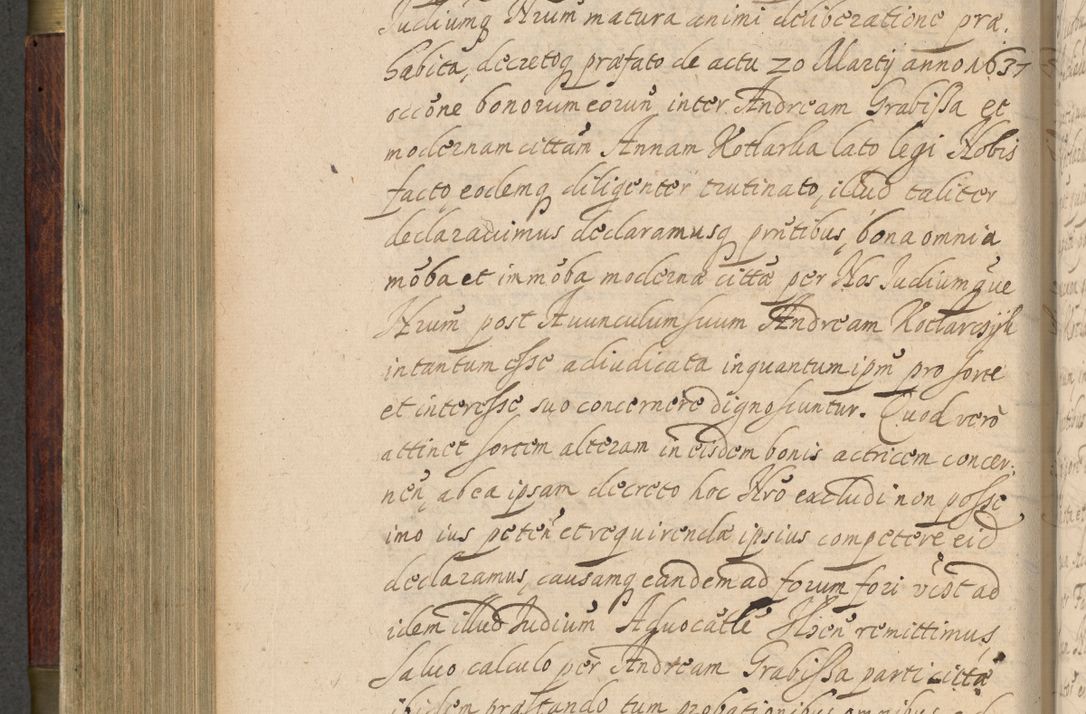 Judiumq Nrum matura animi deliberatione præ,
habita, decretoq præfato de actu 20 Martij anno 1637
occone bonorum eorum inter Andream Grabissa et
modernam cittam Annam Kotlarka lato legi Nobis
facto eodemq diligenter trutinato, illud taliter
declaravimus declaramusq prntibus, bona omnia
moba et immoba modernæ cittæ per Nos Judiumque
Nrum post Avunculum suum Andream Kotlarczyk
in tantum esse adiudicata inquantum ipm pro sorte
et interesse suo concernere dignoscuntur. Quod vero
attinet sortem alteram in eisdem bonis actricem concer:
nen, ab ea ipsam decreto hoc Nro excludi non posse
imo ius peten et requirendæ ipsius competere eid
declaramus, causamq eandem ad forum fori videt ad
idem illud Judium Advocatle remittimus,
salvo calculo per Andream Grabissa parti cittæ
ibidem præstando tum probationibus omnibus ad